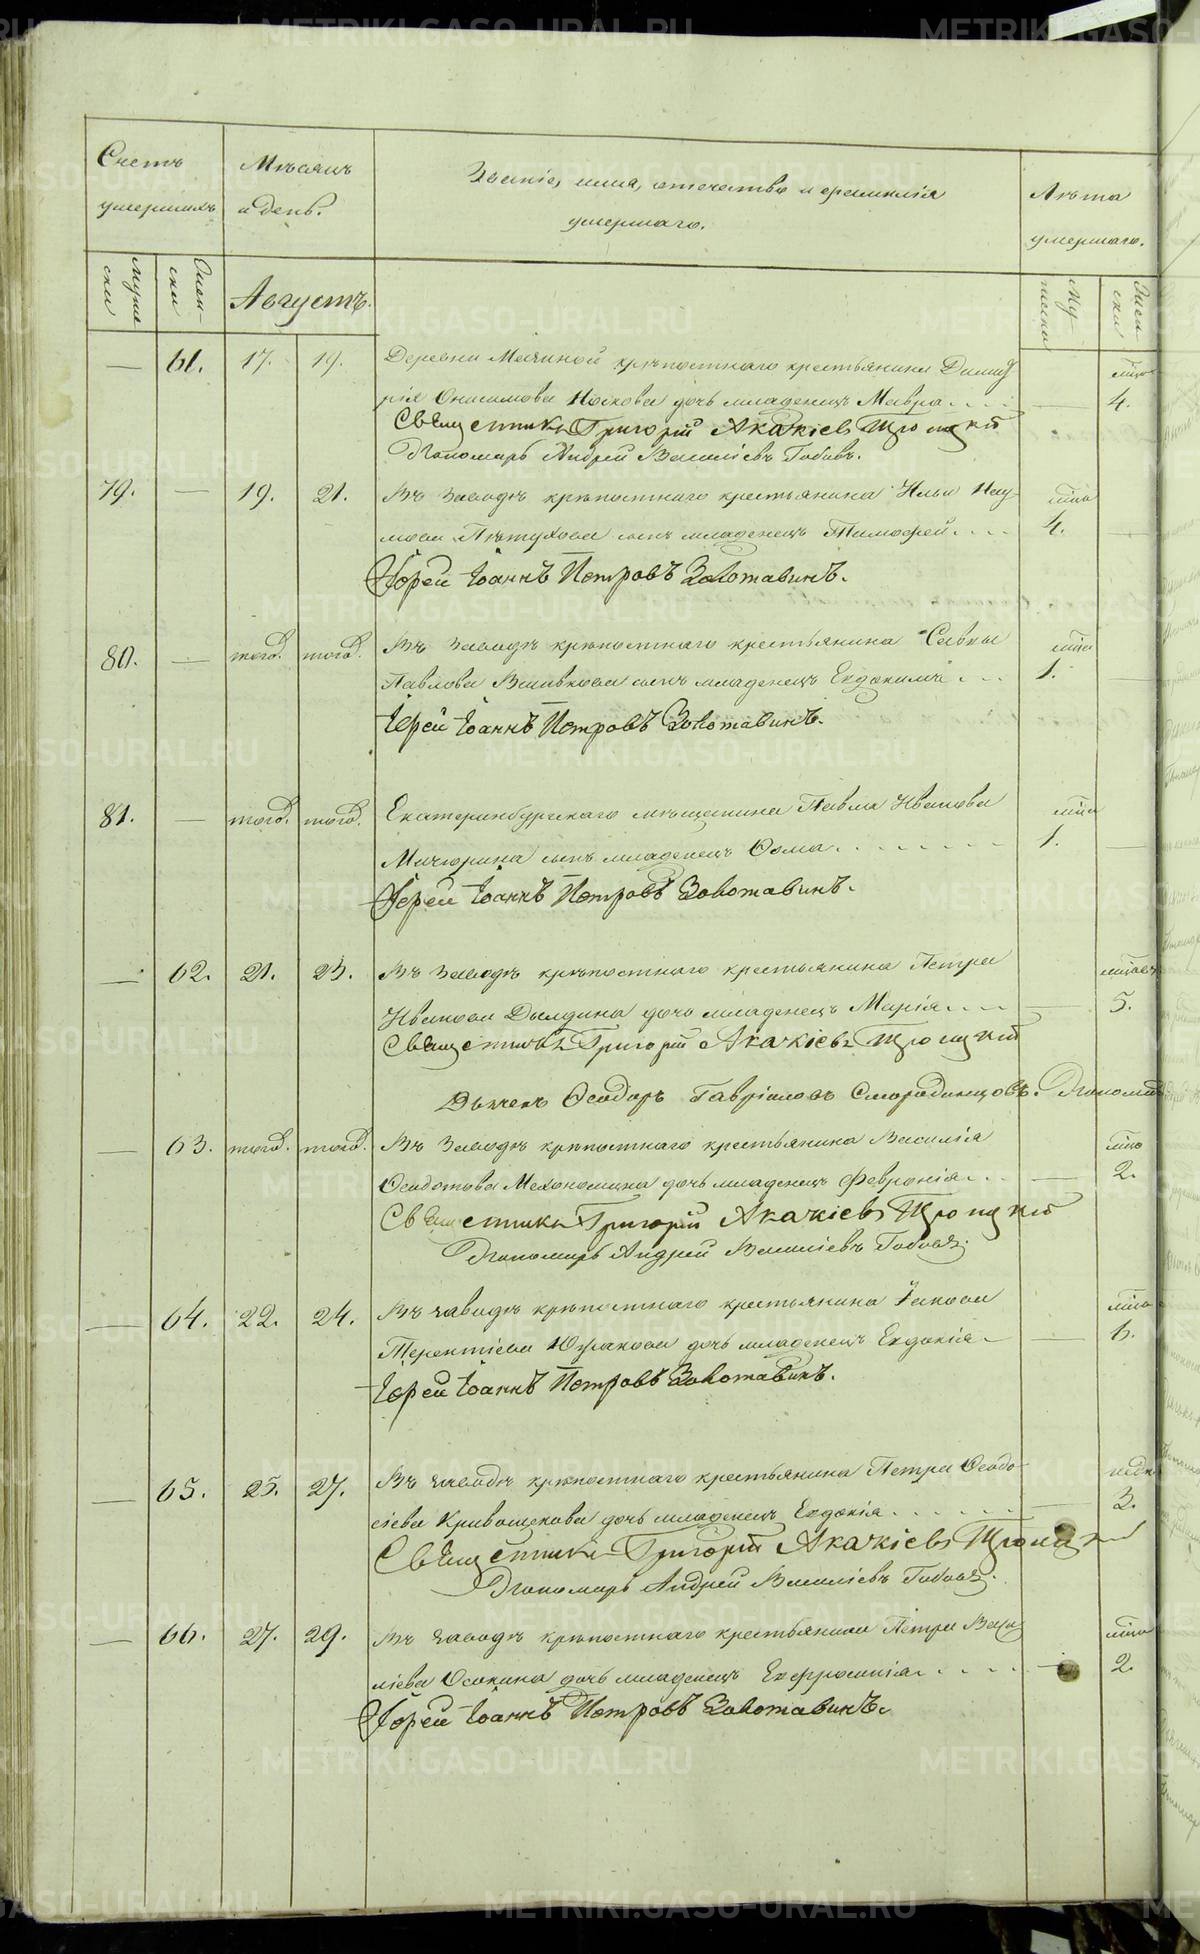 Счетъ умершихъ
Мѣсяцъ и день.
Званіе, имя, отечество и фамилія умершаго.
Лѣта умершаго.
Муже ски
Жен- ски
Августъ.
Му- жески
Жен ски
— 61. 17. 19. Деревни крѣпостнаго крестьянина Димит
мѣся
рія Онисимова Носкова дочь младенецъ Мавра . . . . — 4.
Священникъ Григорій Акакіевъ Троицкій
Пономарь Андрей Василіевъ Бабовъ.
79. — 19. 21. Въ Заводѣ крѣпостнаго крестьянина Ильи Нау-
мѣся
мова Пѣтухова сынъ младенецъ Тимофей . . . . 4. —
Іерей Іоаннъ Петровъ Золотавинъ.
80. — тогож. тогож. Въ Заводѣ крѣпостнаго крестьянина Саввы
мѣся
Павлова сынъ младенецъ Евдокимъ . . . 1. —
Іерей Іоаннъ Петровъ Золотавинъ.
81. — тогож. тогож. Екатеринбургскаго мѣщанина Павла Иванова
мѣся
Мичюрина сынъ младенецъ Ѳома . . . . . . . . 1. —
Іерей Іоаннъ Петровъ Золотавинъ.
— 62. 21. 23. Въ Заводѣ крѣпостнаго крестьянина Петра
мѣсяцъ
Иванова Дылдина дочь младенецъ Марія . . . — 5.
Священникъ Григорій Акакіевъ Троицкій
Дьячекъ Ѳеодоръ Гавріиловъ Смородинцовъ. Пономарь
— 63. тогож. тогож. Въ Заводѣ крѣпостнаго крестьянина Василія
мѣся
Ѳеодотова Мехоношина дочь младенецъ Февронія . . . — 2.
Священникъ Григорій Акакіевъ Троицкій
Пономарь Андрей Василіевъ Бабовъ.
— 64. 22. 24. Въ заводѣ крѣпостнаго крестьянина Іакова
мѣся
Терентіева дочь младенецъ Евдокія — — 1.
Іерей Іоаннъ Петровъ Золотавинъ.
— 65. 25. 27. Въ заводѣ крѣпостнаго крестьянина Петра Ѳеодо-
недѣ
сіева Кривощекова дочь младенецъ Евдокія . . . . . — 3.
Священникъ Григорій Акакіевъ Троицкій
Пономарь Андрей Василіевъ Бабовъ.
— 66. 27. 29. Въ заводѣ крѣпостнаго крестьянина Петра Васи
мѣся
ліева Осокина дочь младенецъ Евфросинія . . . . . — 2.
Іерей Іоаннъ Петровъ Золотавинъ.
METRIKI.GASO-URAL.RU